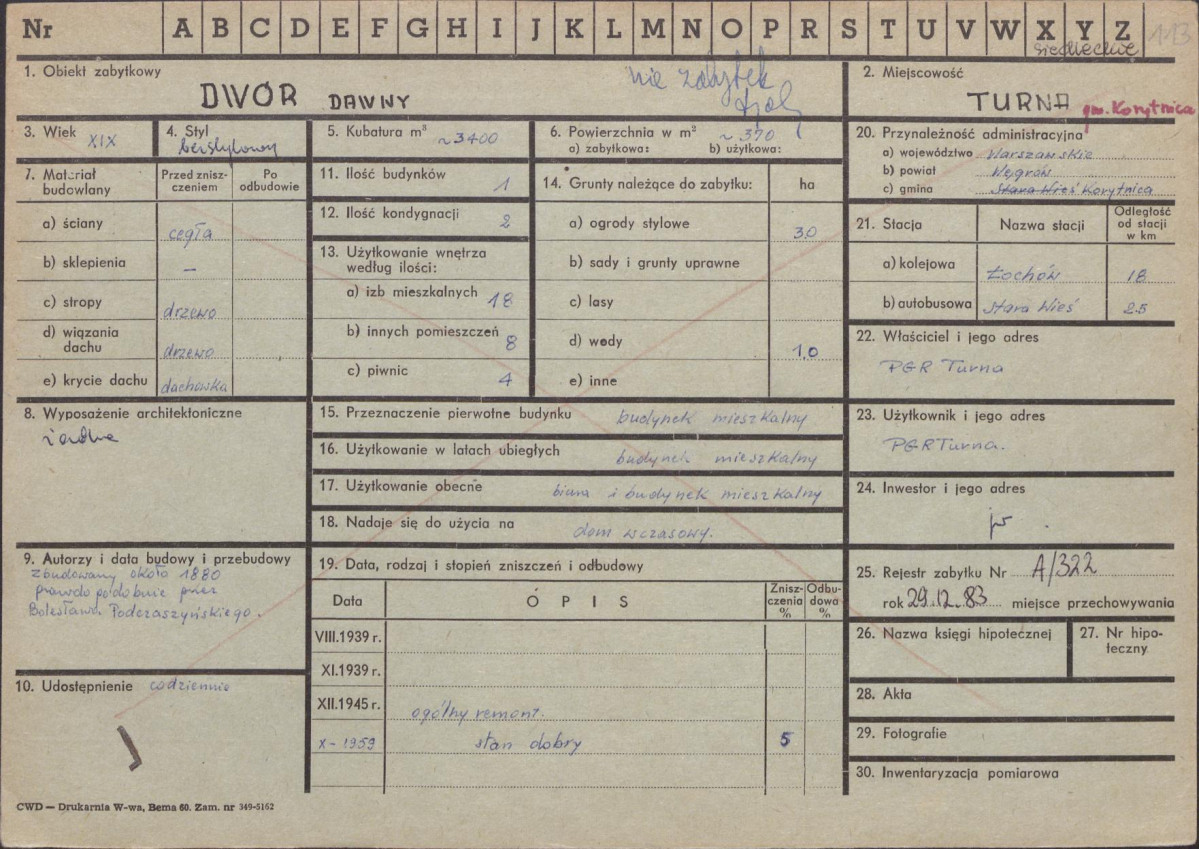 Nr A B C D E F G H I J K L M N O P R S T U V W X Y Z 113
siedleckie
1. Obiekt zabytkowy
DWÓR DAWNY
nie zabytek
2. Miejscowość
TURNA gm. Korytnica
3. Wiek
XIX
4. Styl
bezstylowy
5. Kubatura m³
~3400
6. Powierzchnia w m² ~370
a) zabytkowa: b) użytkowa:
20. Przynależność administracyjna
a) województwo Warszawskie
b) powiat Węgrów
c) gmina Stara Wieś Korytnica
7. Materiał budowlany
Przed zniszczeniem
Po odbudowie
a) ściany cegła
b) sklepienia –
c) stropy drzewo
d) wiązania dachu drzewo
e) krycie dachu dachówka
11. Ilość budynków 1
12. Ilość kondygnacji 2
13. Użytkowanie wnętrza
według ilości:
a) izb mieszkalnych 18
b) innych pomieszczeń 8
c) piwnic 4
14. Grunty należące do zabytku: ha
a) ogrody stylowe 3,0
b) sady i grunty uprawne
c) lasy
d) wody 1,0
e) inne
21. Stacja
Nazwa stacji
Odległość od stacji w km
a) kolejowa Łochów 18
b) autobusowa Stara Wieś 2.5
22. Właściciel i jego adres
PGR Turna
8. Wyposażenie architektoniczne
żadne
15. Przeznaczenie pierwotne budynku budynek mieszkalny
16. Użytkowanie w latach ubiegłych budynek mieszkalny
17. Użytkowanie obecne biura i budynek mieszkalny
18. Nadaje się do użycia na dom wczasowy.
23. Użytkownik i jego adres
PGR Turna.
24. Inwestor i jego adres
jw.
9. Autorzy i data budowy i przebudowy
zbudowany około 1880
prawdopodobnie przez
Bolesława Podczaszyńskiego.
19. Data, rodzaj i stopień zniszczeń i odbudowy
Data
OPIS
Zniszczenia %
Odbudowa %
VIII.1939 r.
XI.1939 r.
XII.1945 r. ogólny remont.
X-1959 stan dobry 5
25. Rejestr zabytku Nr A/322
rok 29.12.83 miejsce przechowywania
26. Nazwa księgi hipotecznej
27. Nr hipoteczny
10. Udostępnienie codziennie
28. Akta
29. Fotografie
30. Inwentaryzacja pomiarowa
CWD — Drukarnia W-wa, Bema 60. Zam. nr 349-5162